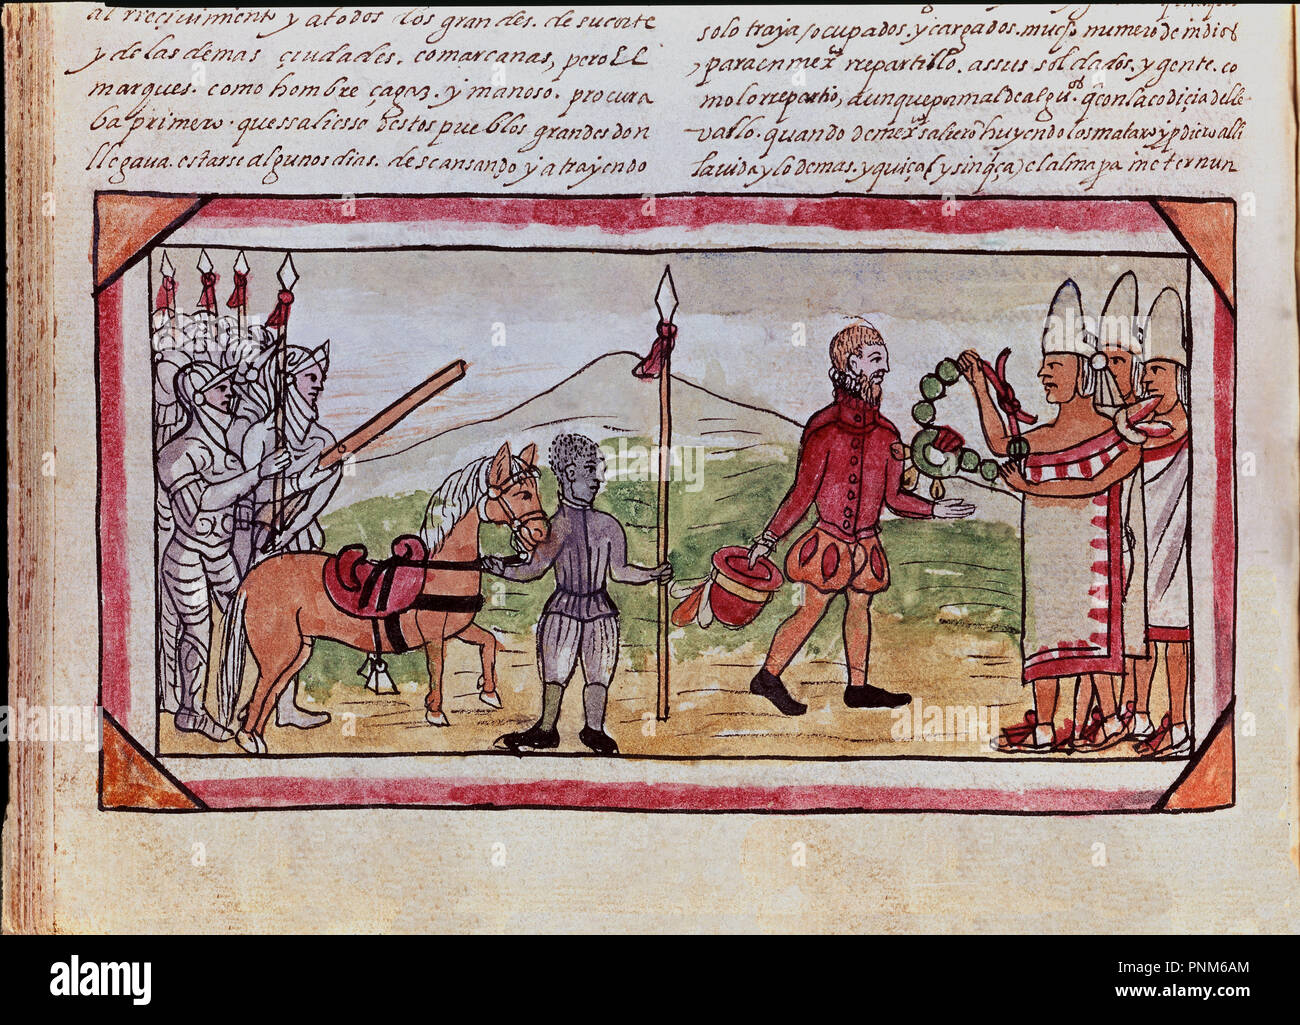 al rreçiuimiento y a todos los grandes. de su corte
y de las demas çiudades. comarcanas, pero EL
marques. como hombre çagaz. y mañoso. procura
ba primero. quessaliesse destos pueblos grandes don
llegaua. estarse algunos dias. descansando y atrayendo
solo traya, ocupados. y cargados. mucho numero de indios
, para en mexco rrepartillo. assus soldados. y gente. co
mo lo rrepartio, aunque por mal de algos. q con la codiçia de lle
varlo. quando de mexco salierō huyendo los mataro y pdierō alli
la vida y lo demas. y quiça (y sin qça) el alma pa meter nun
alamy
a
alamy
a
a
alamy
a
alamy
Image ID: PNM6AM
www.alamy.com